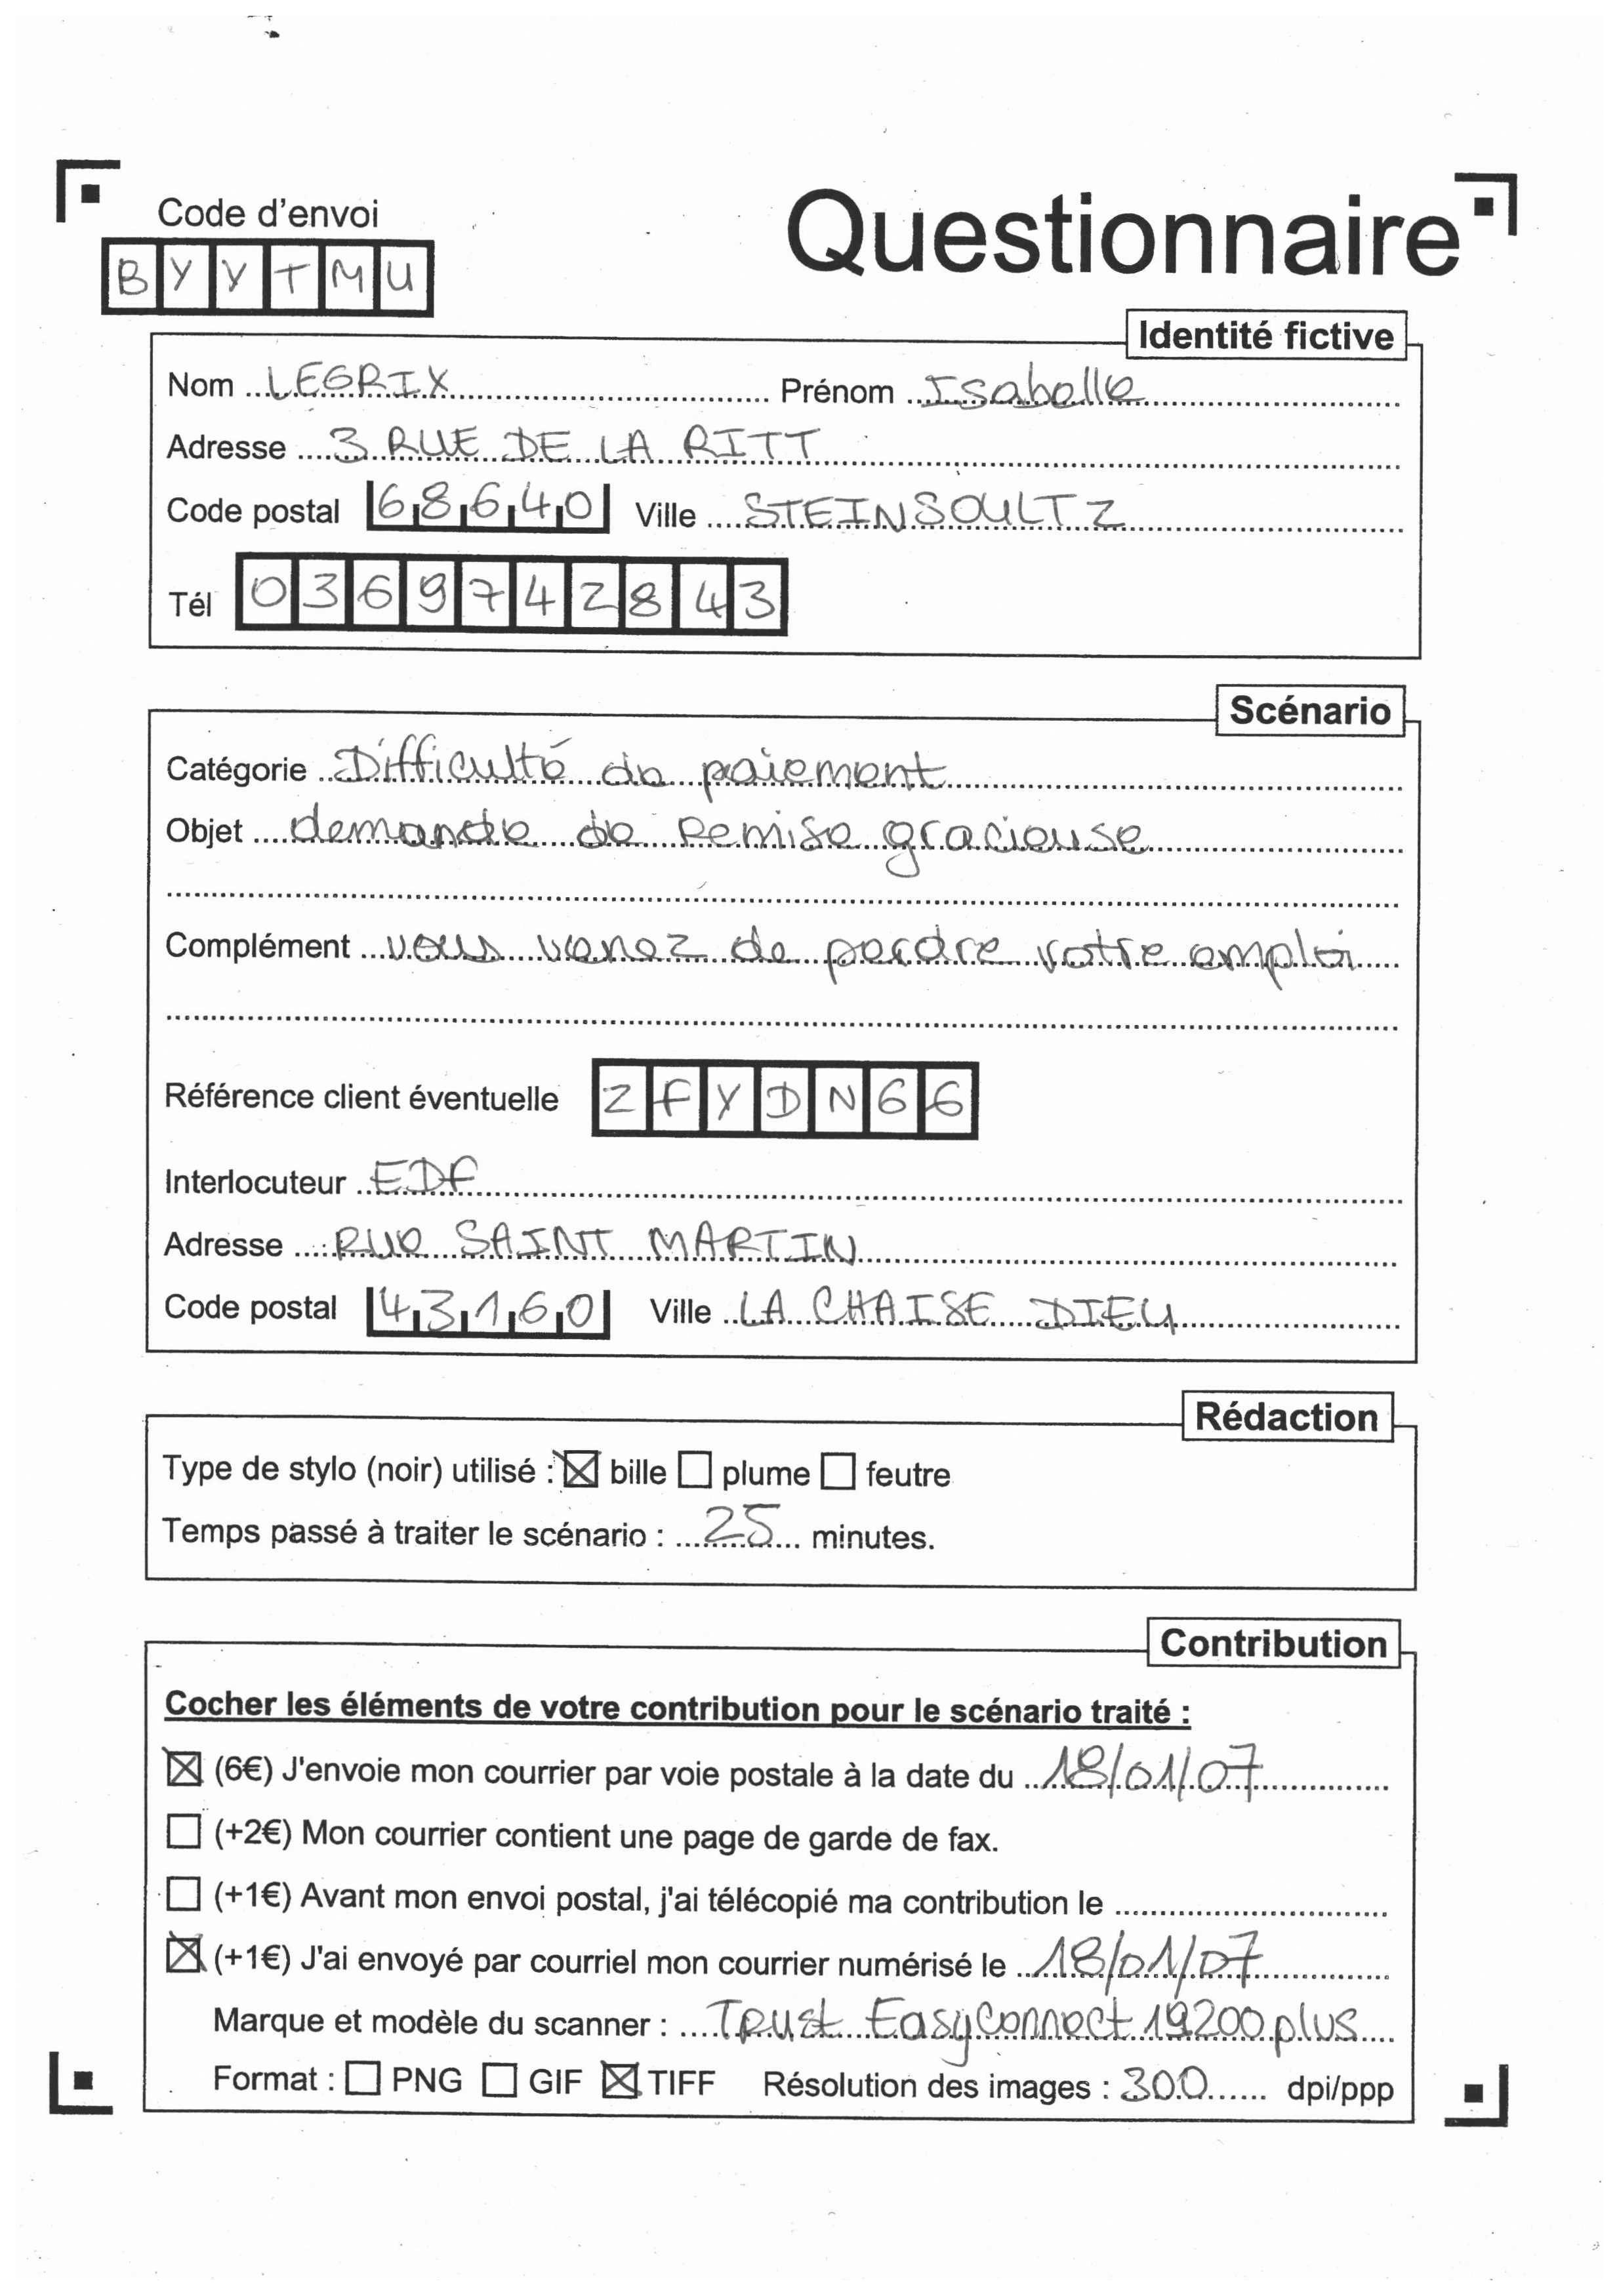 Code d'envoi
Questionnaire
BYYTMU
Identité fictive
Nom LEGRIX Prénom Isabelle
Adresse 3 RUE DE LA RITT
Code postal 68640 Ville STEINSOULTZ
Tél 0369742843
Scénario
Catégorie Difficulté de paiement
Objet demande de Remise gracieuse
Complément vous venez de perdre votre emploi
Référence client éventuelle ZFYDN66
Interlocuteur EDF
Adresse RUE SAINT MARTIN
Code postal 43160 Ville LA CHAISE DIEU
Rédaction
Type de stylo (noir) utilisé : bille plume feutre
Temps passé à traiter le scénario : 25 minutes.
Contribution
Cocher les éléments de votre contribution pour le scénario traité :
(6€) J'envoie mon courrier par voie postale à la date du 18/01/07
(+2€) Mon courrier contient une page de garde de fax.
(+1€) Avant mon envoi postal, j'ai télécopié ma contribution le
(+1€) J'ai envoyé par courriel mon courrier numérisé le 18/01/07
Marque et modèle du scanner : Trust Easyconnect 19200 plus
Format : PNG GIF TIFF Résolution des images : 300 dpi/ppp